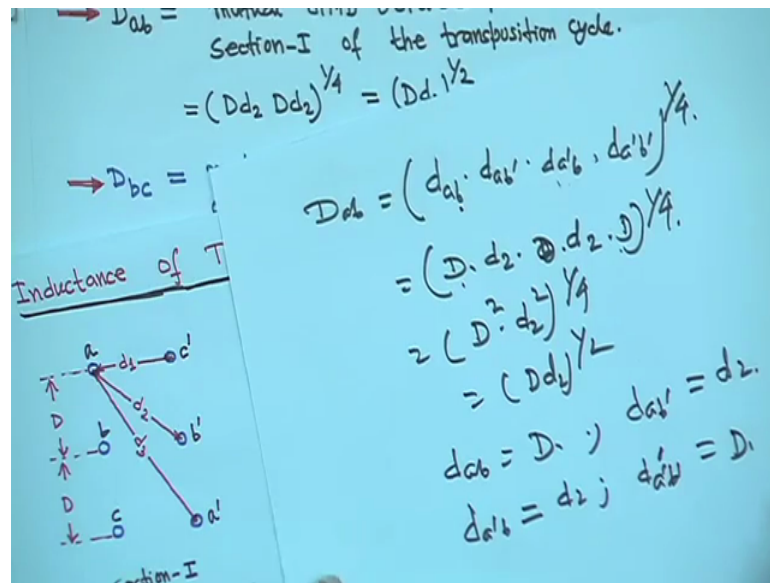 → Dab =
Section-I of the transposition cycle.
= (Dd2 Dd2)^1/4 = (Dd.)^1/2
→ Dbc =
Inductance of T
a
d1
c'
D
d2
b
d3
b'
D
c
a'
ction-I
Dab = (dab . dab' . da'b . da'b')^1/4.
= (D. d2. d2. D)^1/4.
= (D^2. d2^2)^1/4
= (Dd2)^1/2
dab = D. ; dab' = d2.
da'b = d2 ; da'b' = D.